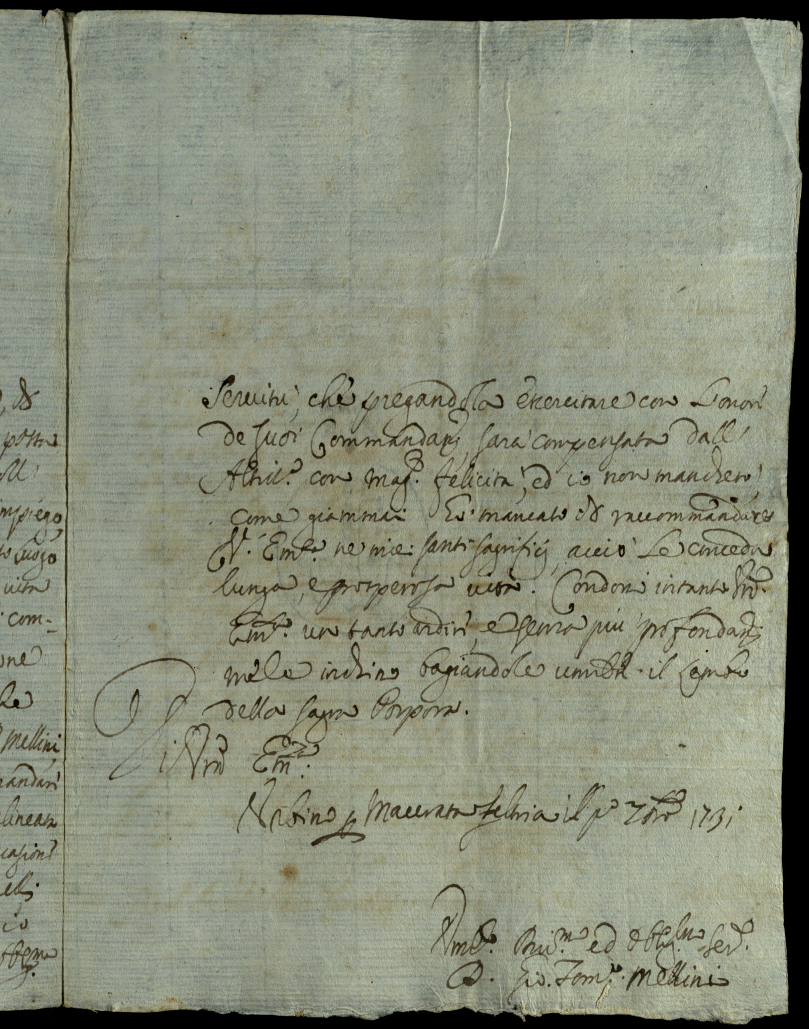 , di
posta
oll'
impiego
to Luogo
vita
com-
one
Mellini
mandari
lineata
casioni
elli
io
obbl.mo
Servitù, che pregandola exercitare con L'onor
de suoi Commandam.ti, sarà compensata dall'
Altis.o con mag.r felicità, ed io non mancherò,
come giammai hò mancato di raccommandare
V. Em.za ne miei santi sagrifizj, acciò Le conceda
lunga, e prosperosa vita. Condoni intanto Vr.a
Em.za un tanto ardir, e senza più profondam.te
me le inchino bagiandole umilm.te il Lembo
della sagra Porpora.
Di Vr.a Em.za
Urbino p Macerata Feltria il p.o 7bre 1731
Um.o Div.mo ed Obbl.mo Ser.e
D. Gio. Tom.o Mellini